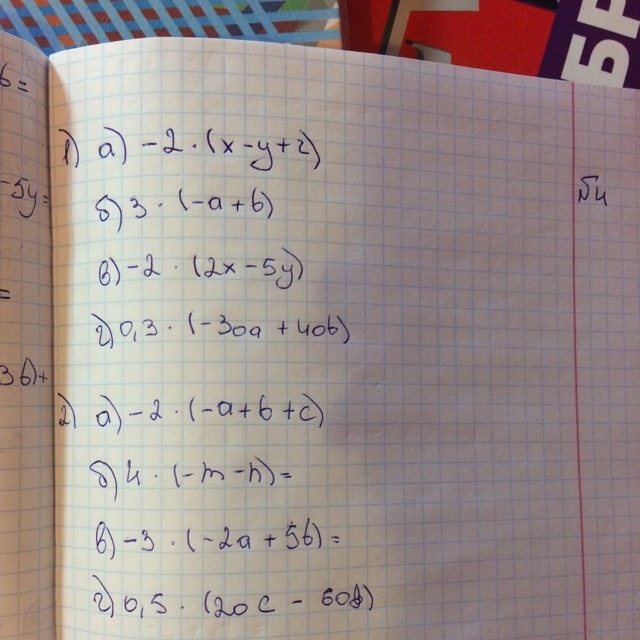 6=
-5y=
=
3b)+
1) а) -2 · (x-y+z)
б) 3 · (-a+b)
в) -2 · (2x-5y)
г) 0,3 · (-30a+40b)
2) а) -2 · (-a+b+c)
б) 4 · (-m-n)=
в) -3 · (-2a+5b)=
г) 0,5 · (20c - 60d)
БР